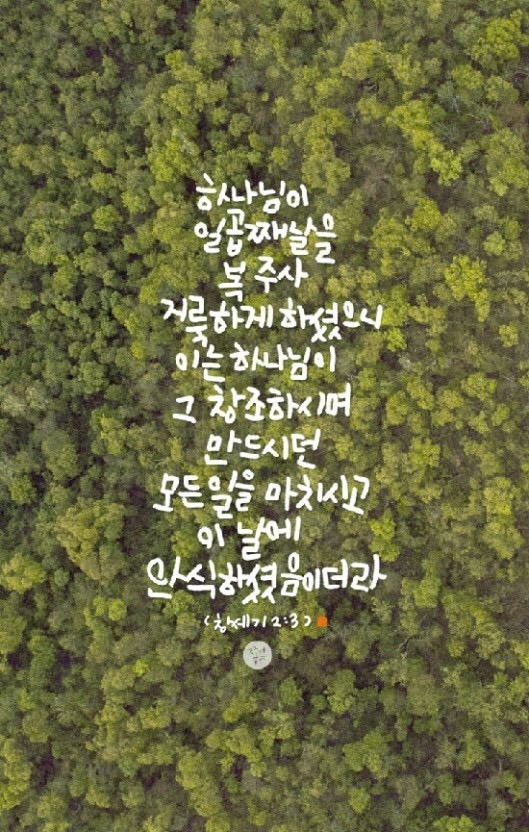 하나님이
일곱째날을
복 주사
거룩하게 하셨으니
이는 하나님이
그 창조하시며
만드시던
모든 일을 마치시고
이 날에
안식하셨음이더라
(창세기 2:3)